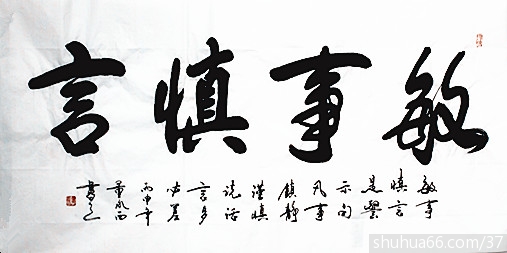 敏事慎言
敏事
慎言
是警
示句
凡事
镇静
谨慎
说话
言多
必差
丙申年
书之
shuhua66.com/37